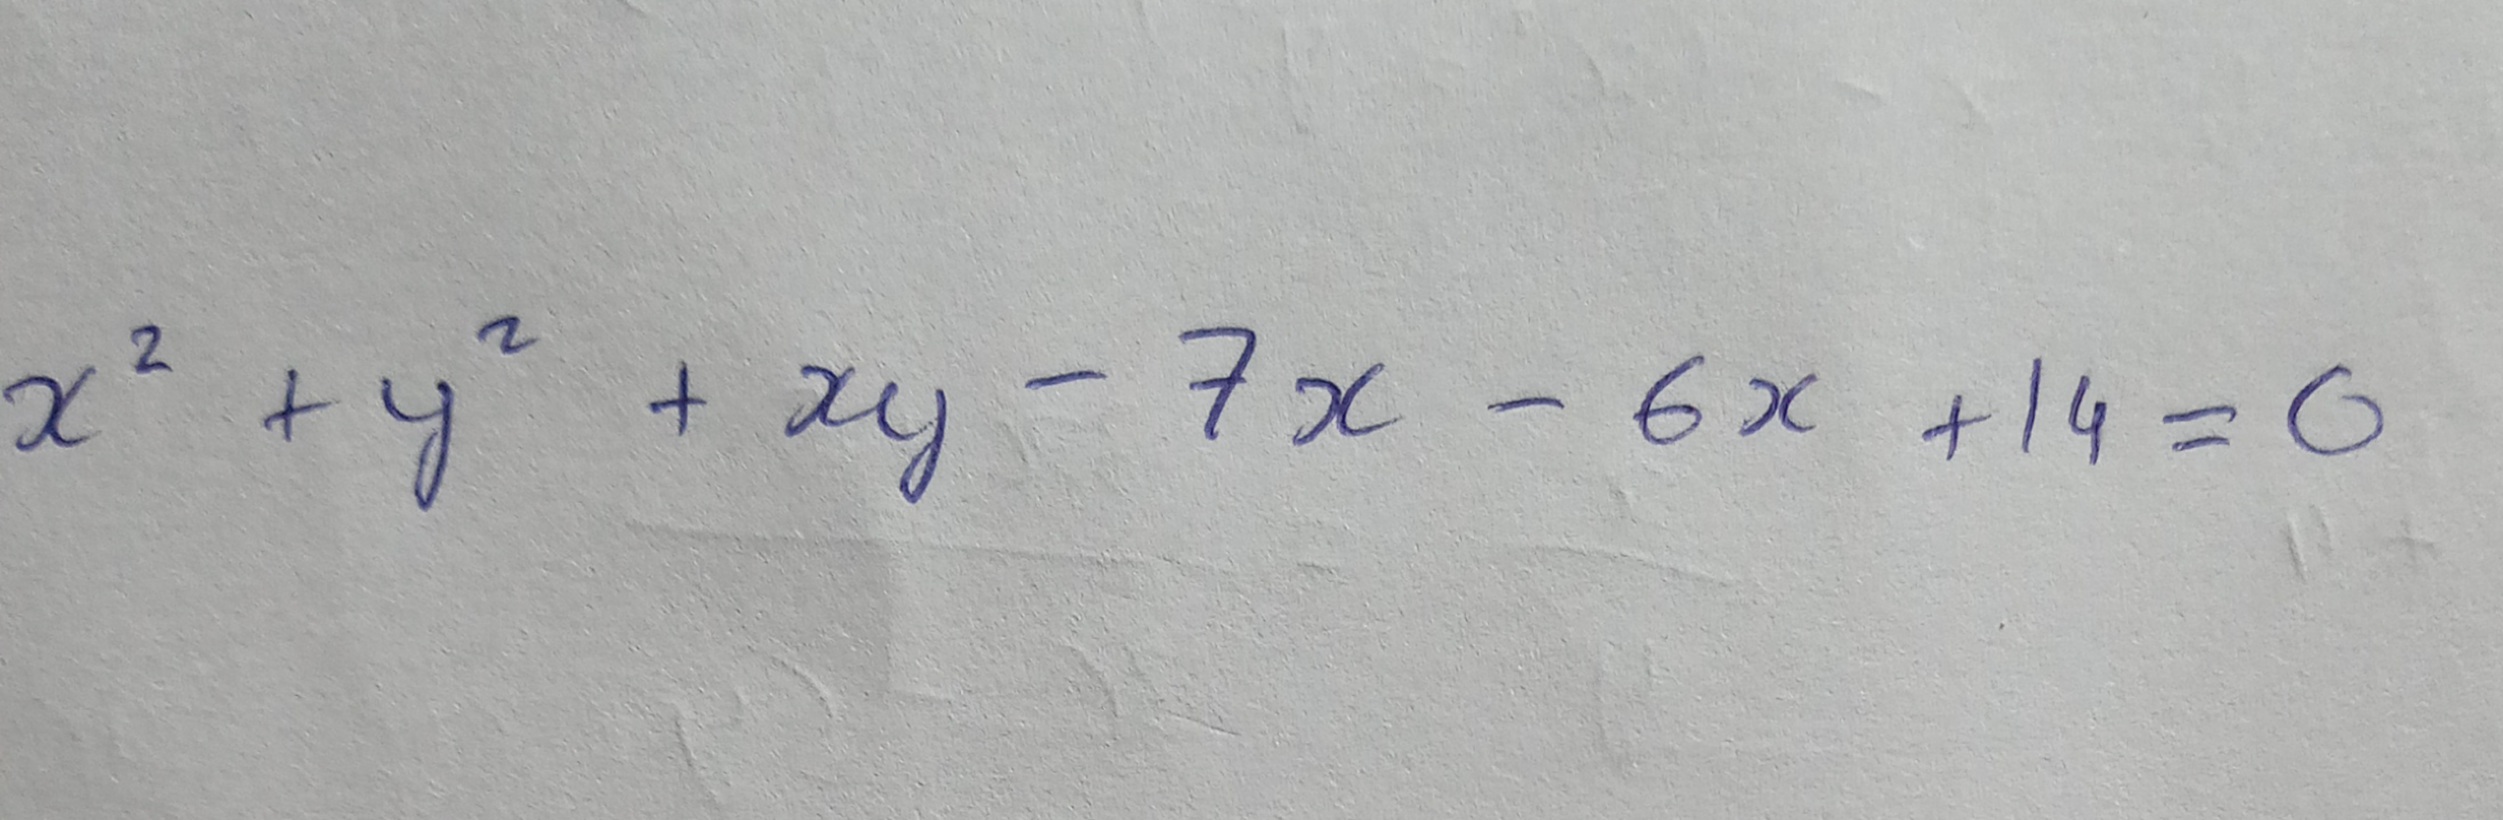 x² + y² + xy - 7x - 6x + 14 = 0